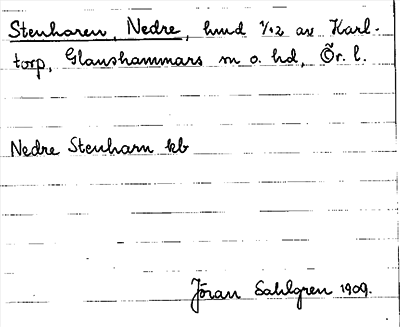 Stenharen, Nedre, hmd 1/12 av Karl-
torp, Glanshammars sn o. hd, Ör. l.
Nedre Stenharn kb
Jöran Sahlgren 1909.